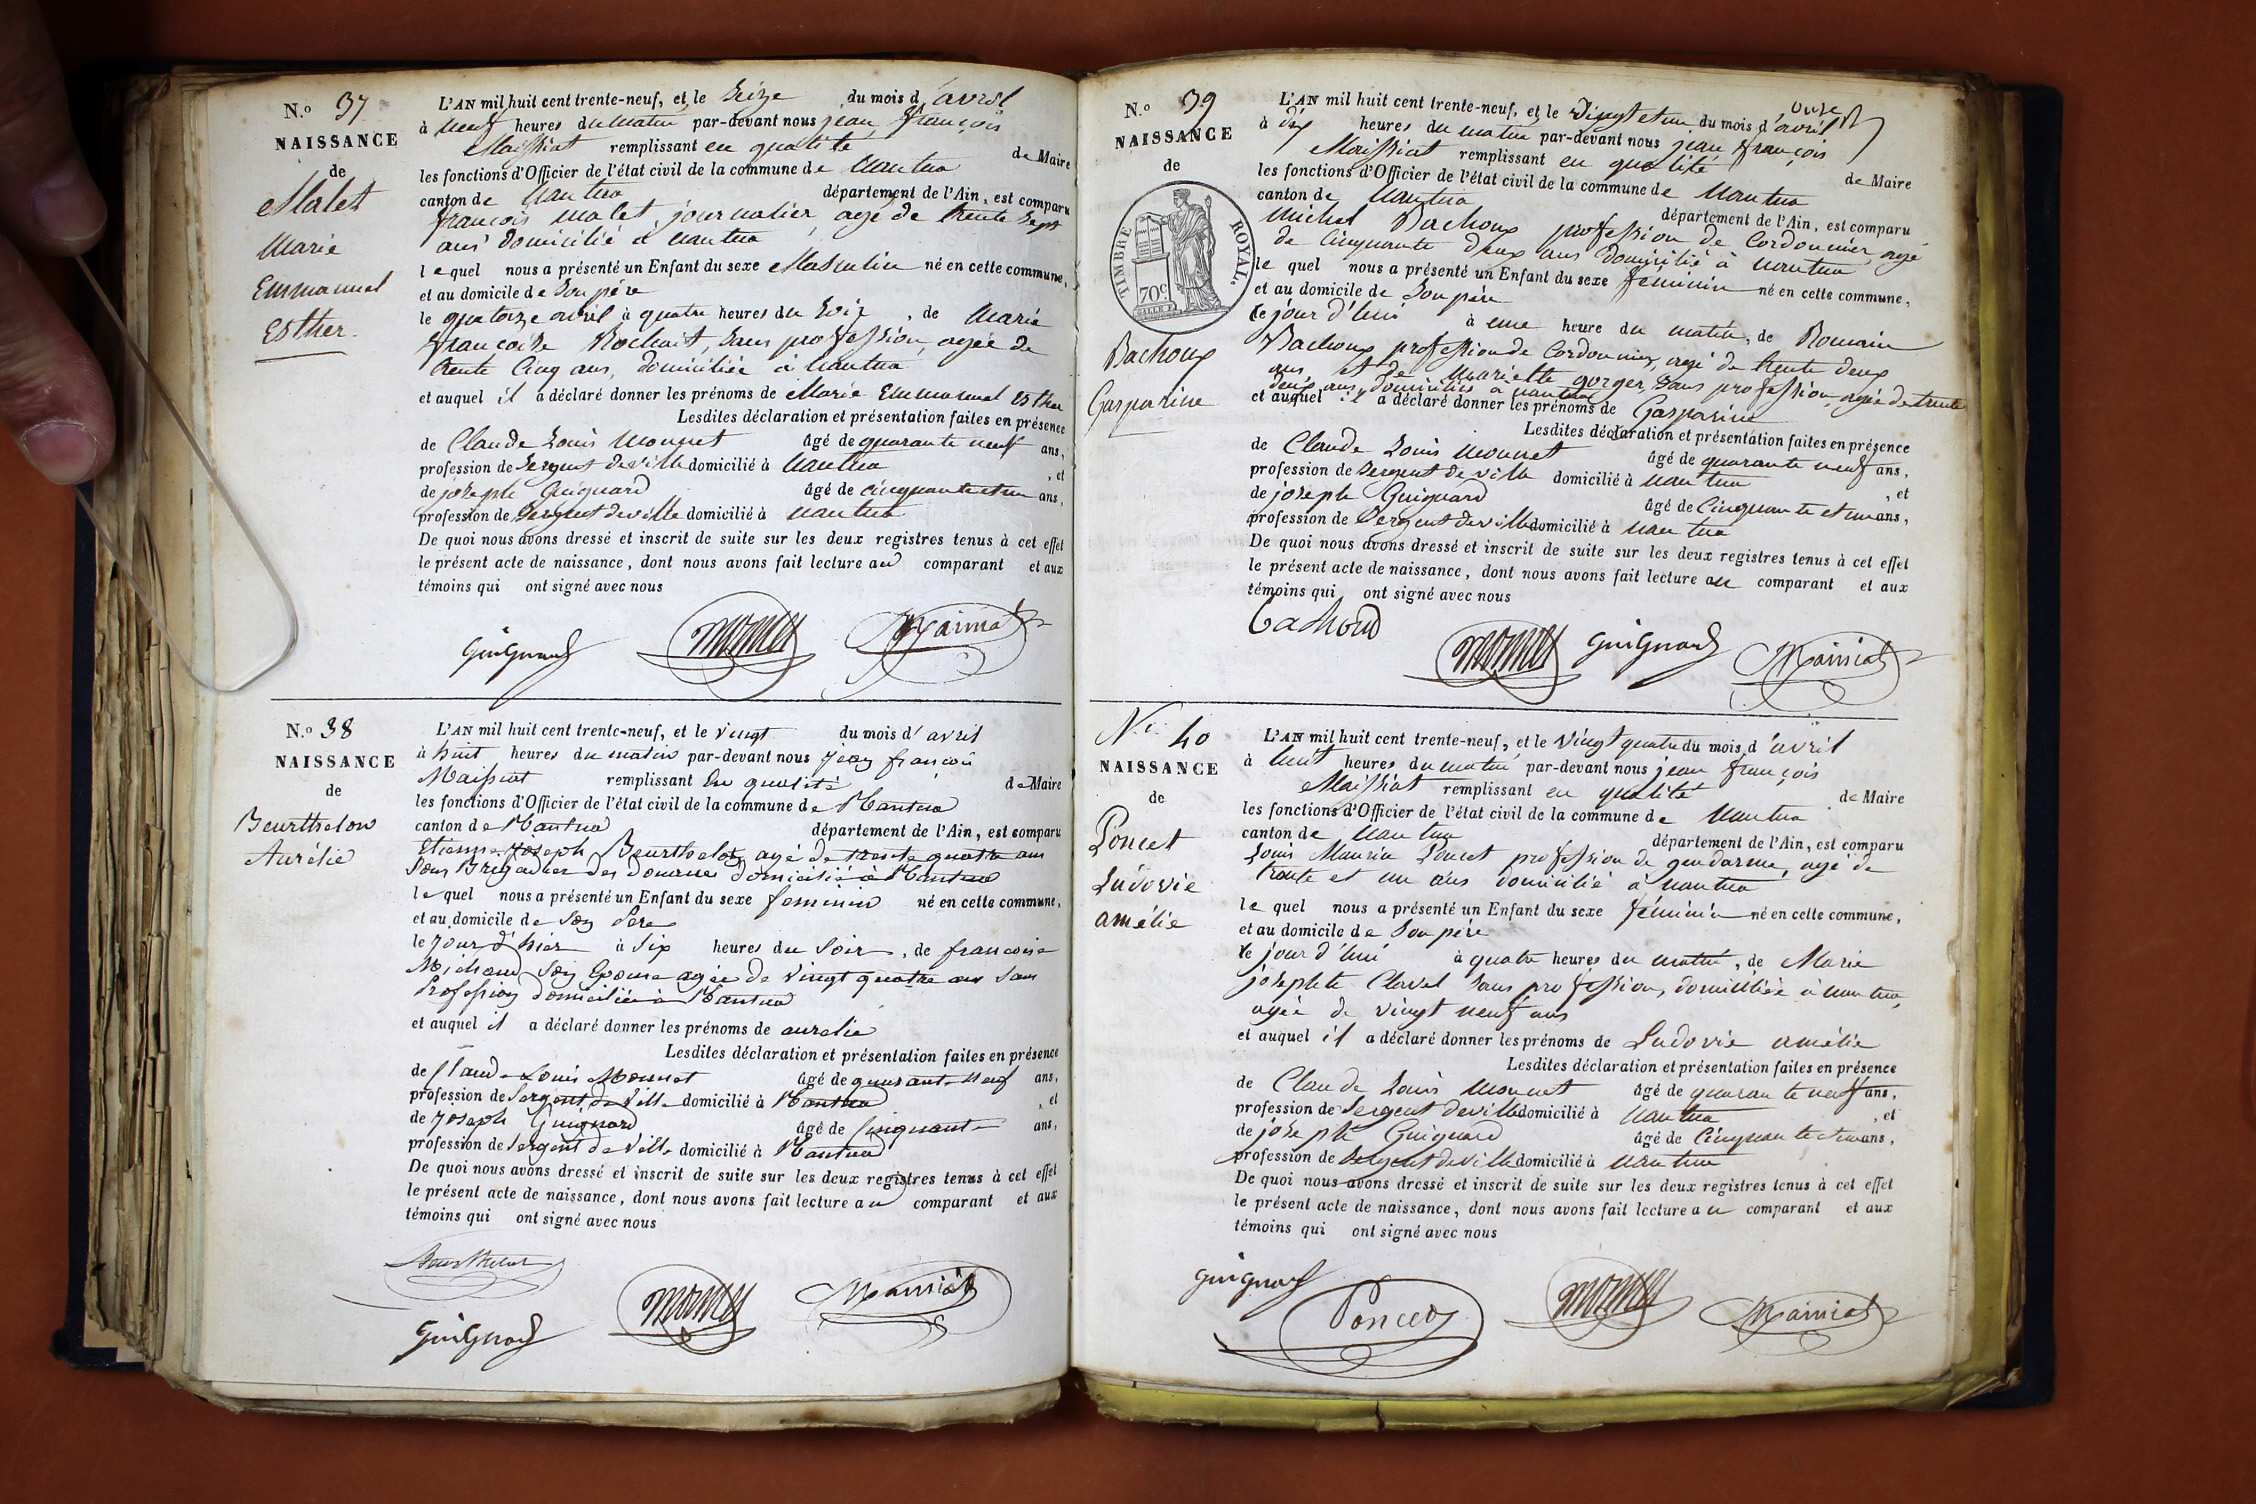 N.º 37
NAISSANCE
de
Malet
Marie
Emmanuel
Esther.
L'AN mil huit cent trente-neuf, et le Seize du mois d'avril
à neuf heures du matin par-devant nous jean françois
Maissiat remplissant en qualité de Maire
les fonctions d'Officier de l'état civil de la commune de Nantua
canton de Nantua département de l'Ain, est comparu
françois malet, journalier, agé de trente Sept
ans domicilié à nantua
lequel nous a présenté un Enfant du sexe Masculin né en cette commune,
et au domicile de Son père
le quatorze avril à quatre heures du Soir, de Marie
françoise Rochait, Sans profession, agée de
trente Cinq ans, domiciliée à nantua
et auquel il a déclaré donner les prénoms de Marie Emmanuel Esther
Lesdites déclaration et présentation faites en présence
de Claude Louis Monnet âgé de quarante neuf ans,
profession de Sergent de ville domicilié à Nantua, et
de joseph Guignard âgé de cinquante et un ans,
profession de Sergent de ville domicilié à nantua
De quoi nous avons dressé et inscrit de suite sur les deux registres tenus à cet effet
le présent acte de naissance, dont nous avons fait lecture au comparant et aux
témoins qui ont signé avec nous
Guignard Monnet Maissiat
N.º 38
NAISSANCE
de
Beurthelot
Aurélie
L'AN mil huit cent trente-neuf, et le vingt du mois d'avril
à huit heures du matin par-devant nous Jean françois
Maissiat remplissant En qualité de Maire
les fonctions d'Officier de l'état civil de la commune de Nantua
canton de Nantua département de l'Ain, est comparu
Etienne Joseph Beurthelot, agé de trente quatre ans
Sous Brigadier des douanes domicilié à Nantua
lequel nous a présenté un Enfant du sexe feminin né en cette commune,
et au domicile de Son Pere
le Jour d'hier à Six heures du Soir, de francoise
Michaud Son Epouse agée de vingt quatre ans Sans
Profession domiciliée à Nantua
et auquel il a déclaré donner les prénoms de aurelie
Lesdites déclaration et présentation faites en présence
de Claude Louis Monnet âgé de quarante Neuf ans,
profession de Sergent de Ville domicilié à Nantua, et
de Joseph Guignard âgé de Cinquante ans,
profession de Sergent de Ville domicilié à Nantua
De quoi nous avons dressé et inscrit de suite sur les deux registres tenus à cet effet
le présent acte de naissance, dont nous avons fait lecture au comparant et aux
témoins qui ont signé avec nous
Beurthelot
Guignard Monnet Maissiat
N.º 39
NAISSANCE
de
TIMBRE ROYAL.
70c
Bachoux
Gasparine
L'AN mil huit cent trente-neuf, et le Vingt et un du mois d'avril
à dix heures du matin par-devant nous jean françois
Maissiat remplissant en qualité de Maire
les fonctions d'Officier de l'état civil de la commune de Nantua
canton de Nantua département de l'Ain, est comparu
Michel Bachoux profession de Cordonnier, agé
de Cinquante deux ans domicilié à nantua
lequel nous a présenté un Enfant du sexe féminin né en cette commune,
et au domicile de Son père
le jour d'hui à une heure du matin, de Romain
Bachoux profession de Cordonnier, agé de trente deux
ans et de Mariette gorger, Sans profession, agée de trente
deux ans, domiciliés à nantua
et auquel il a déclaré donner les prénoms de Gasparine
Lesdites déclaration et présentation faites en présence
de Claude Louis Monnet âgé de quarante neuf ans,
profession de Sergent de ville domicilié à nantua, et
de joseph Guignard âgé de Cinquante et un ans,
profession de Sergent de ville domicilié à nantua
De quoi nous avons dressé et inscrit de suite sur les deux registres tenus à cet effet
le présent acte de naissance, dont nous avons fait lecture au comparant et aux
témoins qui ont signé avec nous
Monnet Guignard Maissiat
N.º 40
NAISSANCE
de
Poncet
Ludovie
amélie
L'AN mil huit cent trente-neuf, et le Vingt quatre du mois d'avril
à huit heures du matin par-devant nous jean françois
Maissiat remplissant en qualité de Maire
les fonctions d'Officier de l'état civil de la commune de Nantua
canton de Nantua département de l'Ain, est comparu
Louis Maurice Poncet profession de gendarme, agé de
trente et un ans domicilié à nantua
lequel nous a présenté un Enfant du sexe féminin né en cette commune,
et au domicile de Son père
le jour d'hui à quatre heures du matin, de Marie
josephte Clavel Sans profession, domiciliée à nantua,
agée de vingt neuf ans
et auquel il a déclaré donner les prénoms de Ludovie amélie
Lesdites déclaration et présentation faites en présence
de Claude Louis Monnet âgé de quarante neuf ans,
profession de Sergent de ville domicilié à Nantua, et
de joseph Guignard âgé de Cinquante et un ans,
profession de Sergent de ville domicilié à nantua
De quoi nous avons dressé et inscrit de suite sur les deux registres tenus à cet effet
le présent acte de naissance, dont nous avons fait lecture au comparant et aux
témoins qui ont signé avec nous
Guignard Poncet Monnet Maissiat